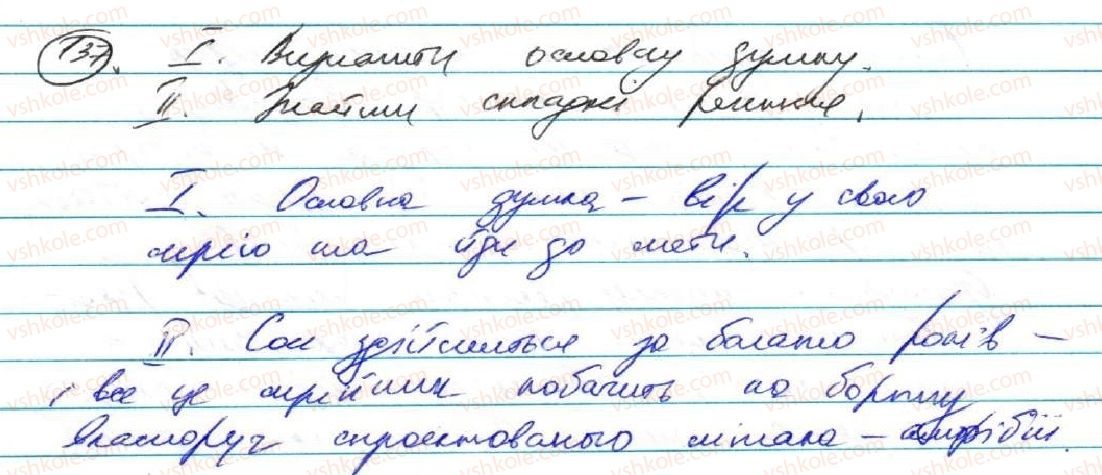 137. I. Визначити основну думку.
II. Знайти складні речення.
I. Основна думка – вір у свою
мрію та йди до мети.
II. Сон здійсниться за багато років –
і все це мрійник побачить на борту
власноруч спроектованого літака – амфібії.